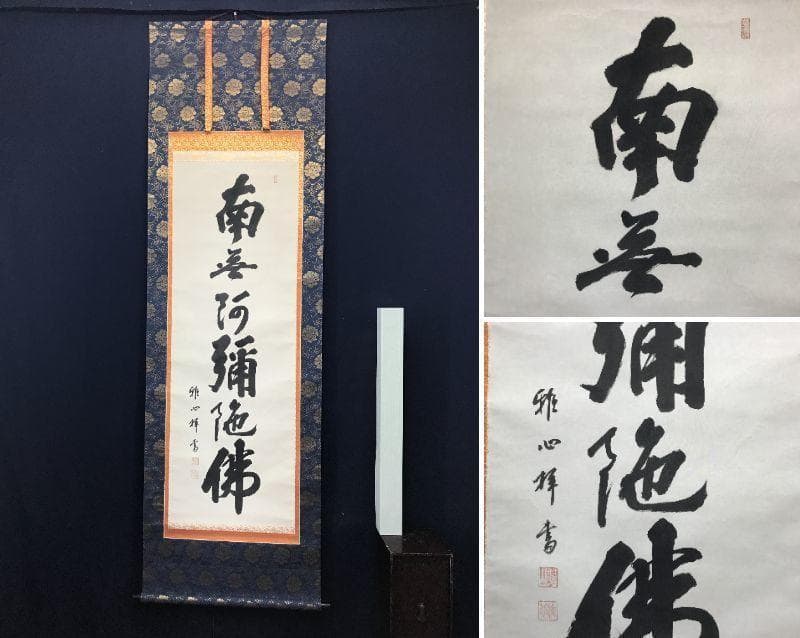 南無阿彌陀佛
雅心拝書
南無
彌陀佛
雅心拝書